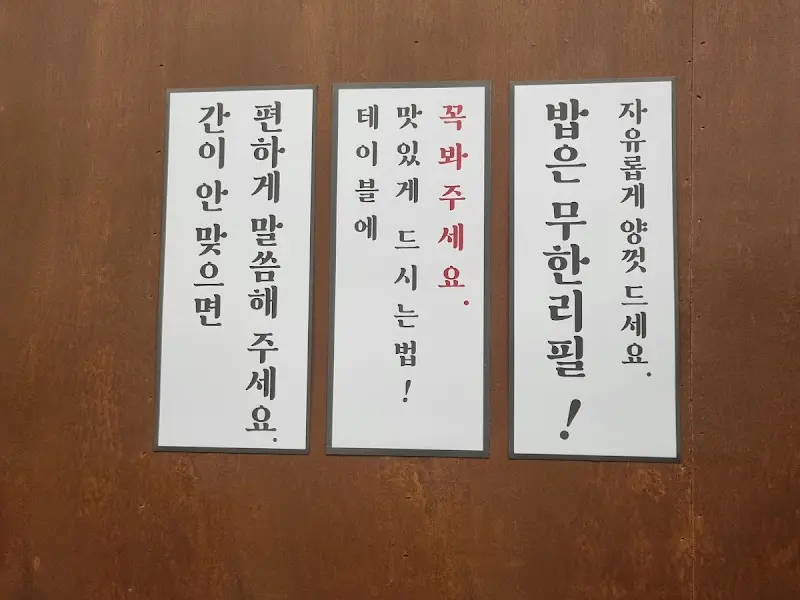 간이 안 맞으면
편하게 말씀해 주세요.
테이블에
맛있게 드시는법!
꼭 봐주세요.
밥은 무한리필!
자유롭게 양껏 드세요.